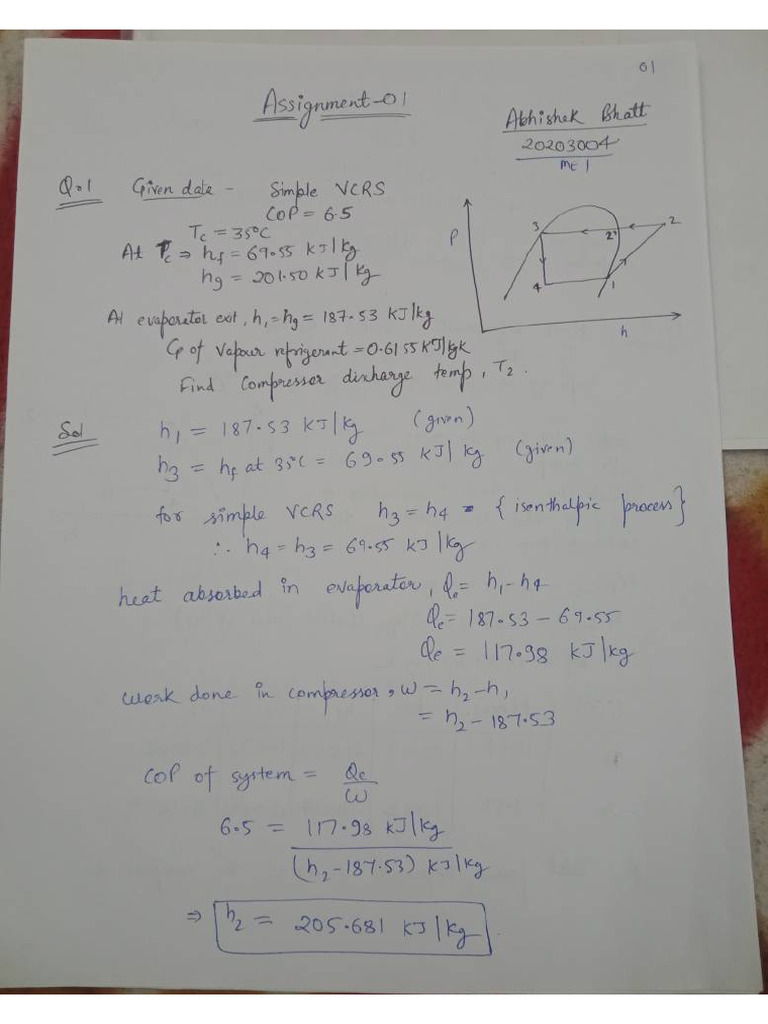 01
Assignment-01
Abhishek Bhatt
20203004
ME 1
Q.1 Given date - Simple VCRS
COP = 6.5
Tc = 35°C
At Pc ⇒ hf = 69.55 KJ/kg
hg = 201.50 KJ/kg
P
3 2' 2
4 1
h
At evaporator exit, h1 = hg = 187.53 KJ/kg
Cp of vapour refrigerant = 0.6155 KJ/kgK
Find Compressor discharge temp, T2.
Sol h1 = 187.53 KJ/kg (given)
h3 = hf at 35°C = 69.55 KJ/kg (given)
for simple VCRS h3 = h4 = {isenthalpic process}
∴ h4 = h3 = 69.55 KJ/kg
heat absorbed in evaporator, Qe = h1 - h4
Qe = 187.53 - 69.55
Qe = 117.98 KJ/kg
work done in compressor, W = h2 - h1
= h2 - 187.53
COP of system = Qe
W
6.5 = 117.98 KJ/kg
(h2 - 187.53) KJ/kg
⇒ h2 = 205.681 KJ/kg.